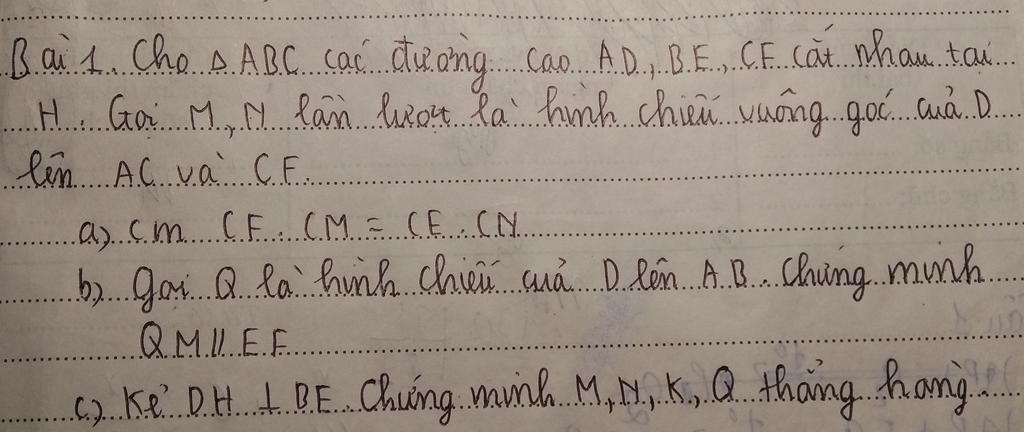 Bài 1. Cho △ ABC các đường cao AD, BE, CF cắt nhau tại
H. Gọi M, N lần lượt là hình chiếu vuông góc của D
lên AC và CF.
a) cm CF. CM = CE. CN
b) gọi Q là hình chiếu của D lên AB. Chứng minh
QM // EF
c) Kẻ DH ⊥ BE. Chứng minh M, N, K, Q thẳng hàng